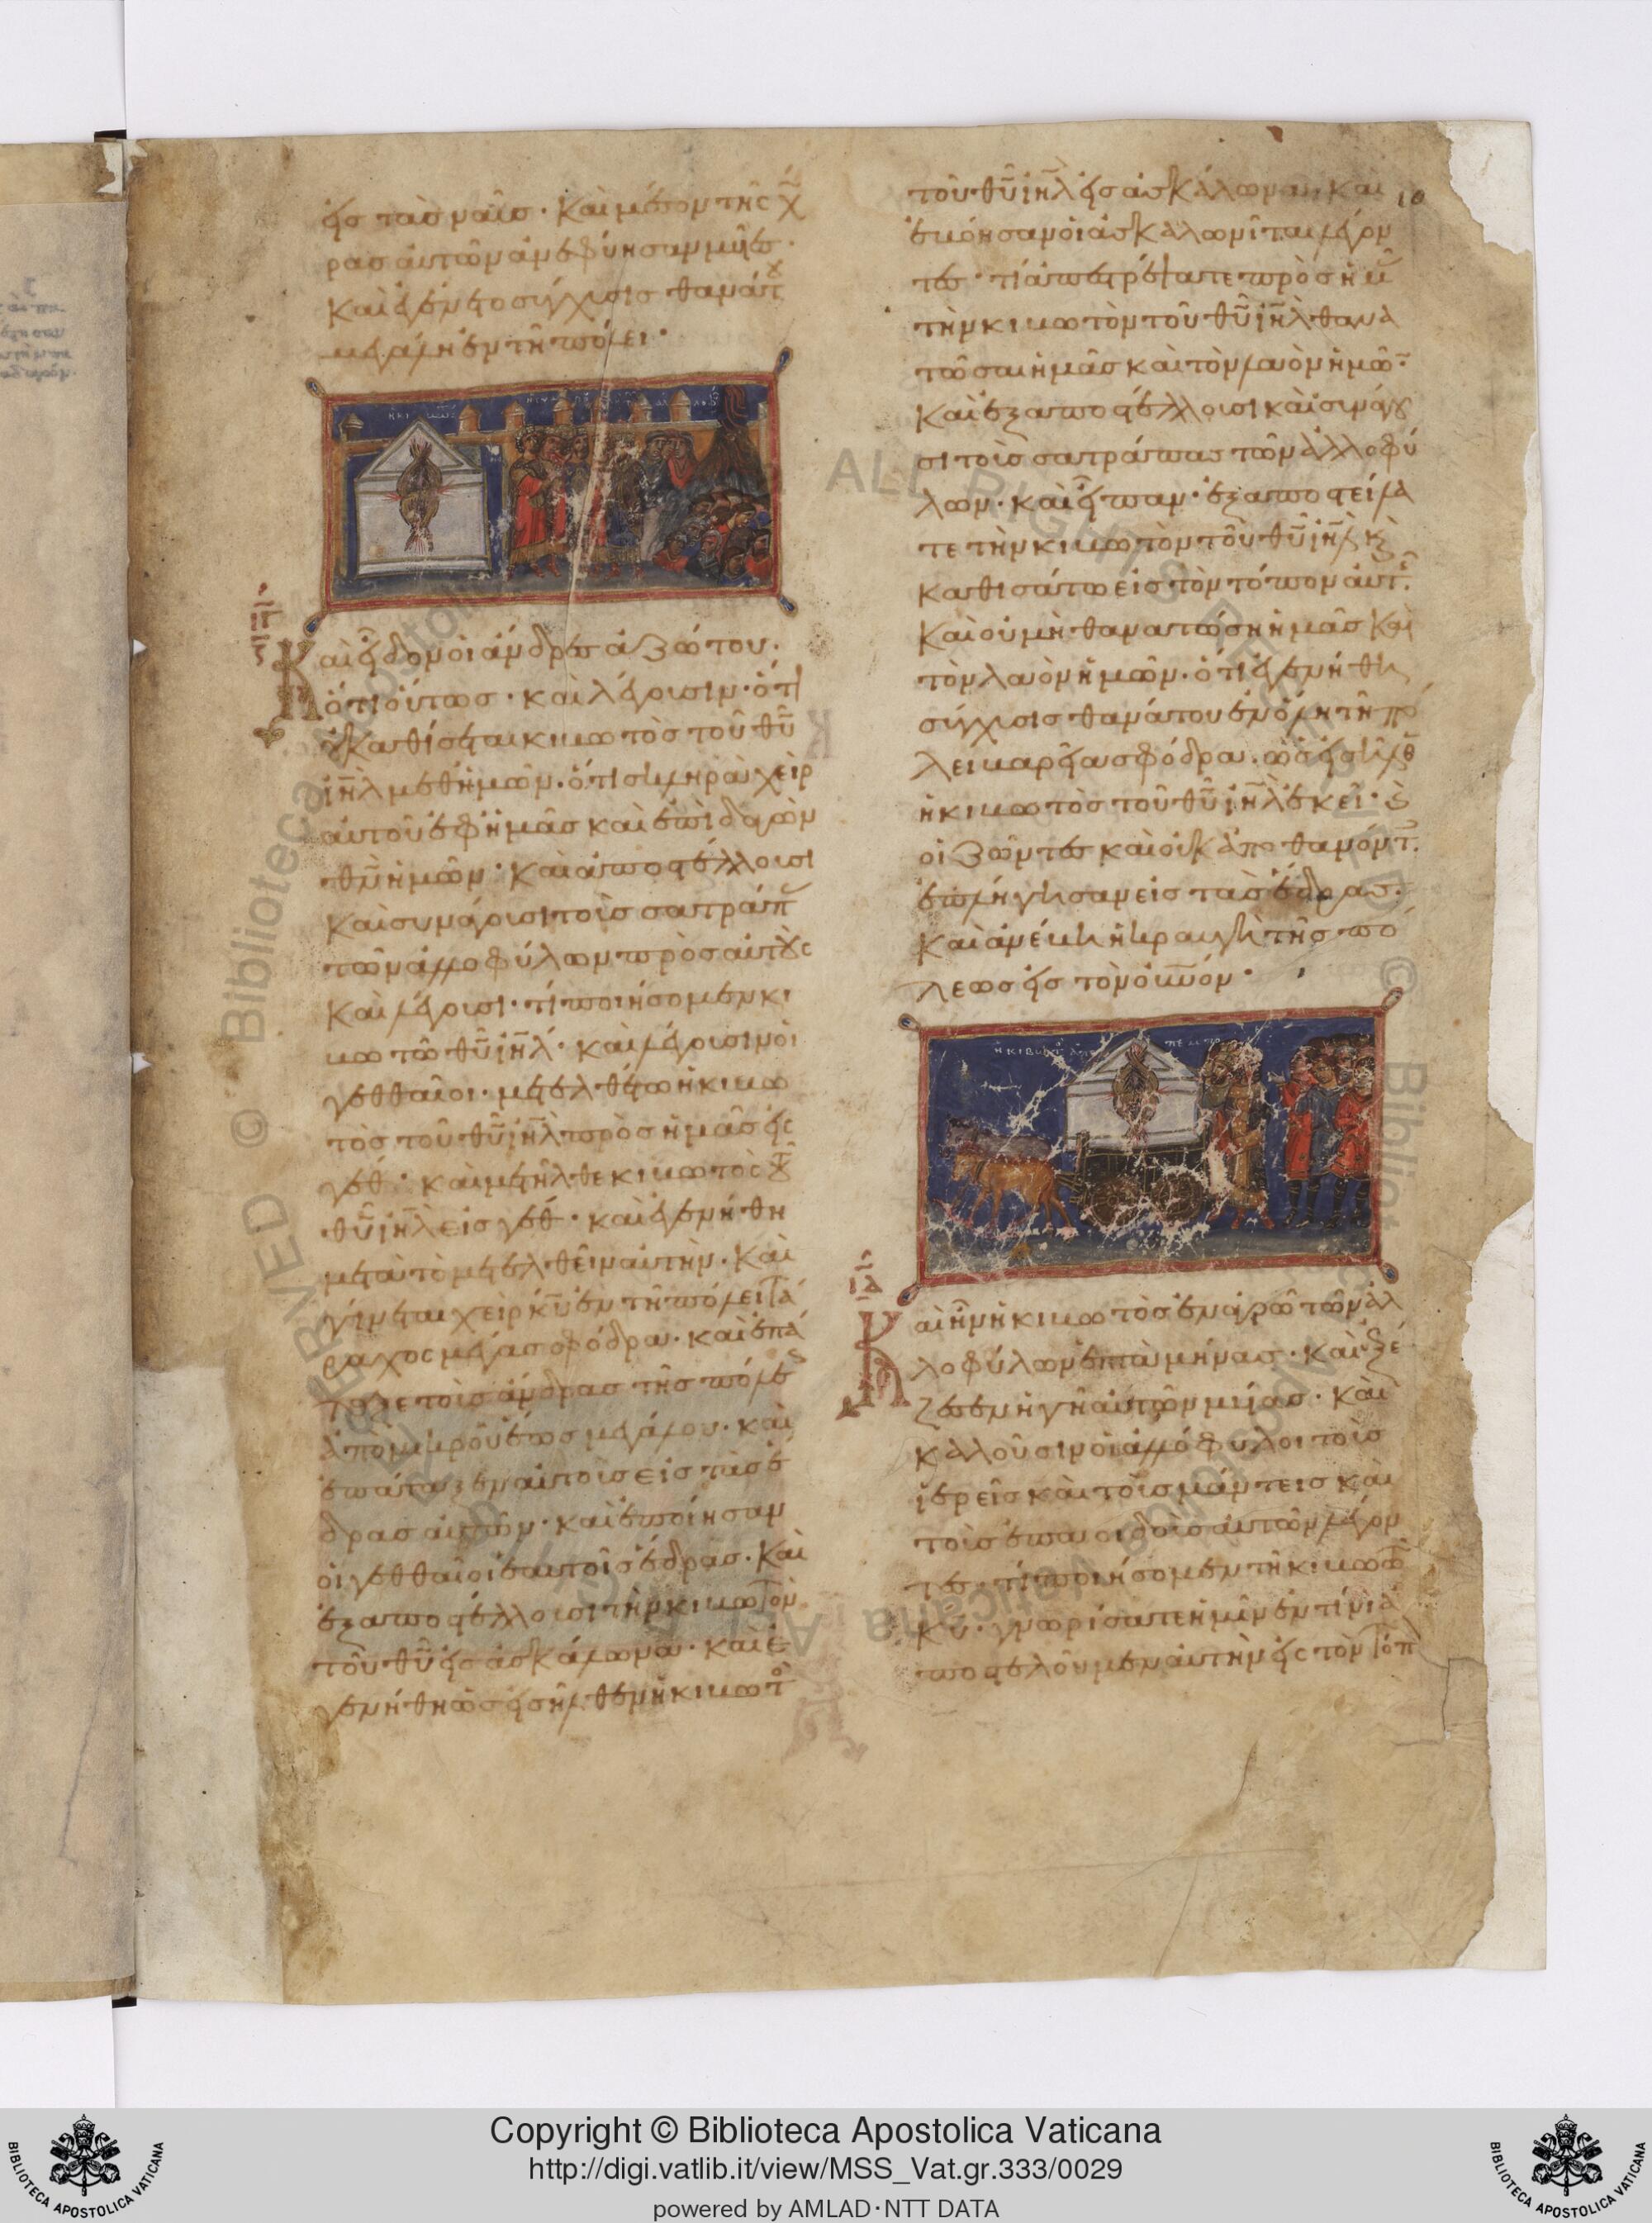 εἰς τὰς ναῦς· καὶ μέσον τῆς χώ
ρας αὐτῶν ἀνεφύησαν μύες·
καὶ ἐγένετο σύγχυσις θανάτου
μεγάλη ἐν τῇ πόλει·
Καὶ εἶδον οἱ ἄνδρες ἀζώτου·
ὅτι οὕτως· καὶ λέγουσιν· ὅτι
οὐ καθίσεται κιβωτὸς τοῦ θῦ
ιηλ μεθ' ἡμῶν· ὅτι σκληρὰ χεὶρ
αὐτοῦ ἐφ' ἡμᾶς καὶ ἐπὶ δαγὼν
θν ἡμῶν· καὶ ἀποστέλλουσι
καὶ συνάγουσι τοὺς σατράπ
τῶν ἀλλοφύλων πρὸς αὐτοὺς
καὶ λέγουσι· τί ποιήσομεν κι
βωτῶ θῦ ιηλ· καὶ λέγουσιν οἱ
γεθθαῖοι· μετελθέτω ἡ κιβω
τὸς τοῦ θῦ ιηλ πρὸς ἡμᾶς εἰς
γέθ· καὶ μετῆλθε κιβωτὸς τοῦ
θῦ ιηλ εἰς γέθ· καὶ ἐγενήθη
μετὰ τὸ μετελθεῖν αὐτήν· καὶ
γίνεται χεὶρ κυ ἐν τῇ πόλει τά
ραχος μέγας σφόδρα· καὶ ἐπά
ταξε τοὺς ἄνδρας τῆς πόλε
ἀπὸ μικροῦ ἕως μεγάλου· καὶ
ἐπάταξεν αὐτοὺς εἰς τὰς ἕ
δρας αὐτῶν· καὶ ἐποίησαν
οἱ γεθθαῖοι ἑαυτοῖς ἕδρας· καὶ
ἐξαποστέλλουσι τὴν κιβωτὸν
τοῦ θῦ εἰς ἀσκάλωνα· καὶ ἐ
γενήθη ὡς εἰσῆλθεν ἡ κιβωτὸ
τοῦ θῦ ιηλ εἰς ἀσκάλωνα· καὶ
ἐβόησαν οἱ ἀσκαλωνῖται λέγον
τες· τί ἀπεστρέψατε πρὸς ἡμ
τὴν κιβωτὸν τοῦ θῦ ιηλ θανα
τῶσαι ἡμᾶς καὶ τὸν λαὸν ἡμῶ·
καὶ ἐξαποστέλλουσι καὶ συνάγου
σι τοὺς σατράπας τῶν ἀλλοφύ
λων· καὶ εἶπαν· ἐξαποστείλα
τε τὴν κιβωτὸν τοῦ θῦ ιηλ κ
καθισάτω εἰς τὸν τόπον αὐτ·
καὶ οὐ μὴ θανατώση ἡμᾶς καὶ
τὸν λαὸν ἡμῶν· ὅτι ἐγενήθη
σύγχυσις θανάτου ἐν ὅλη τῇ πό
λει βαρεῖα σφόδρα· ὡς εἰσῆλθ
ἡ κιβωτὸς τοῦ θῦ ιηλ ἐκεῖ· κ
οἱ ζῶντες καὶ οὐκ ἀποθανόντ
ἐπλήγησαν εἰς τὰς ἕδρας·
καὶ ἀνέβη ἡ κραυγὴ τῆς πό
λεως εἰς τὸν οὐνόν·
Καὶ ἦν ἡ κιβωτὸς ἐν ἀγρῶ τῶν ἀλ
λοφύλων ἑπτὰ μῆνας· καὶ ἐξέ
ζεσεν ἡ γῆ αὐτῶν μύας· καὶ
καλοῦσιν οἱ ἀλλόφυλοι τοὺς
ἱερεῖς καὶ τοὺς μάντεις καὶ
τοὺς ἐπαοιδοὺς αὐτῶν λέγον
τες· τί ποιήσομεν τῇ κιβωτῶ
κυ· γνωρίσατε ἡμῖν ἐν τίνι ἀ
ποστελοῦμεν αὐτὴν εἰς τὸν τόπ
10
Copyright © Biblioteca Apostolica Vaticana
http://digi.vatlib.it/view/MSS_Vat.gr.333/0029
powered by AMLAD·NTT DATA
BIBLIOTECA APOSTOLICA VATICANA
BIBLIOTECA APOSTOLICA VATICANA